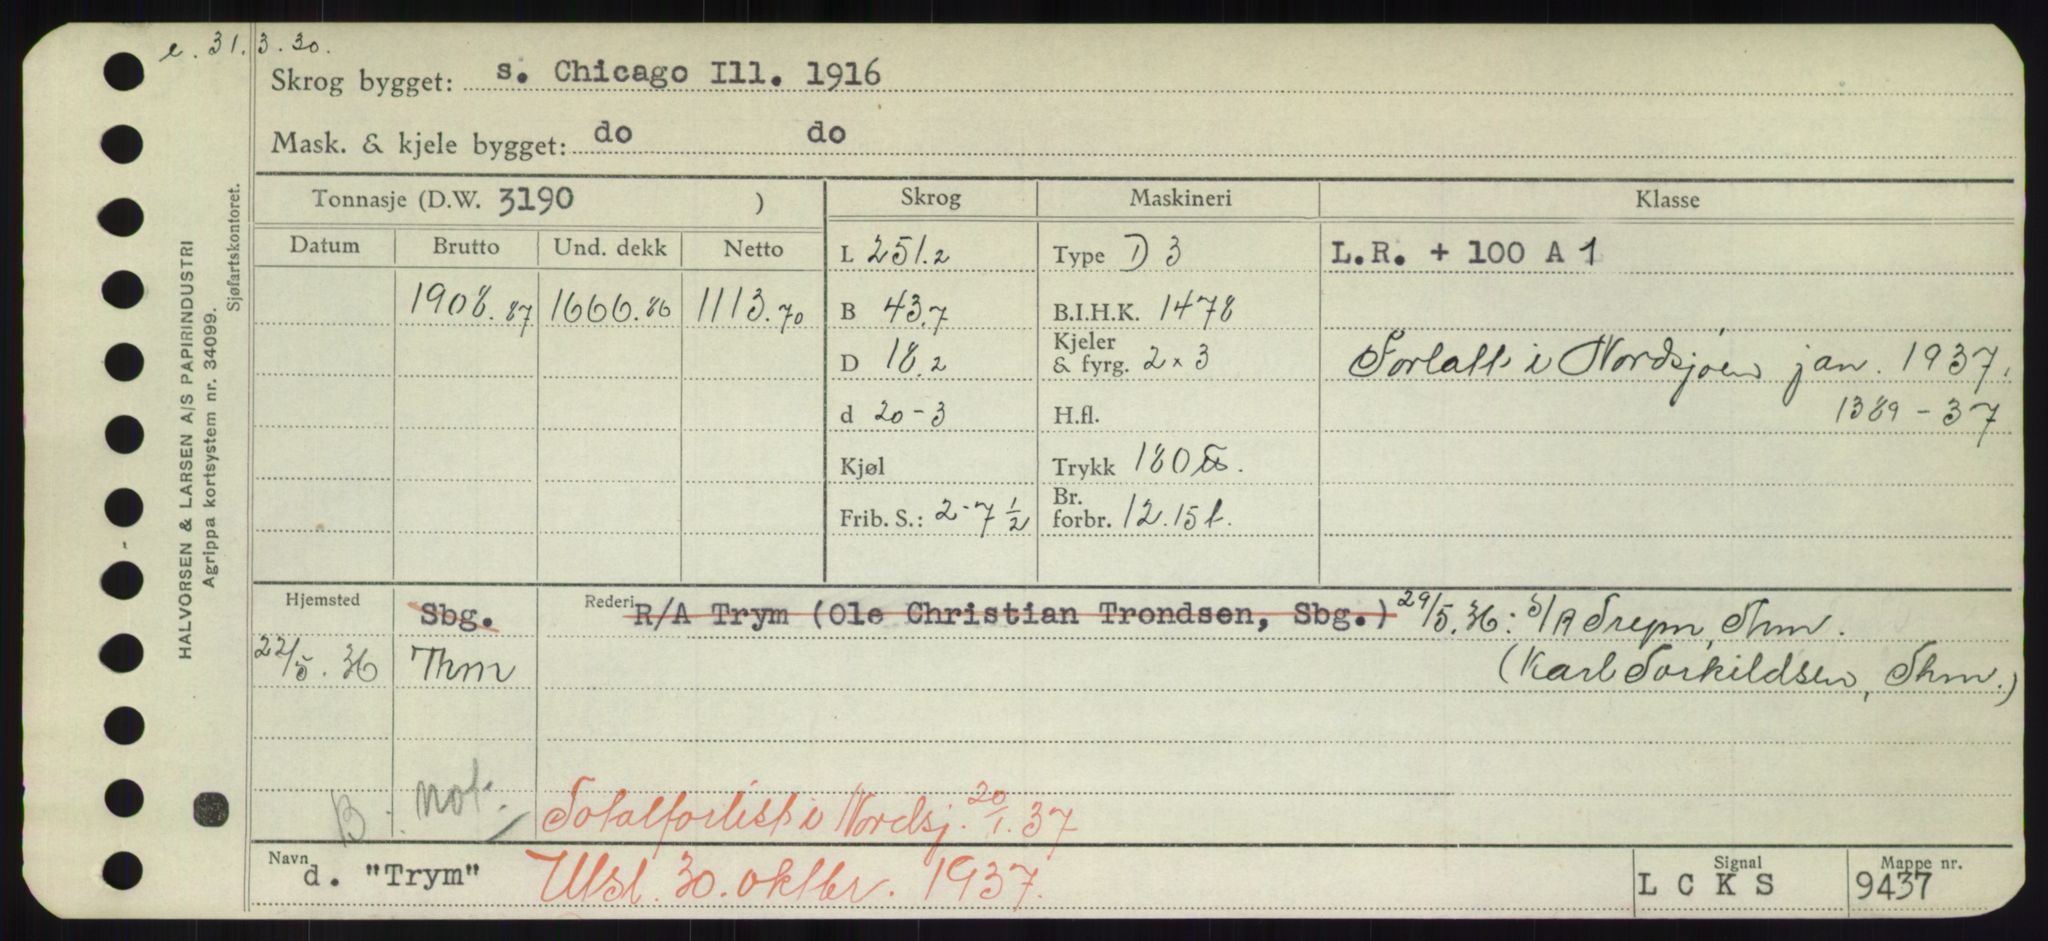 e. 31.3.30.
Skrog bygget: s. Chicago Ill. 1916
Mask. & kjele bygget: do do
HALVORSEN & LARSEN A/S PAPIRINDUSTRI
Agrippa kortsystem nr. 34099.
Sjøfartskontoret.
Tonnasje (D.W. 3190 )
Datum Brutto Und. dekk Netto
1908.87 1666.86 1113.70
Skrog
L 251.2
B 43.7
D 18.2
d 20-3
Kjøl
Frib. S.: 2-7 1/2
Maskineri
Type D 3
B.I.H.K. 1478
Kjeler
& fyrg. 2 x 3
H.fl.
Trykk 180 lbs.
Br.
forbr. 12.15 t.
Klasse
L.R. + 100 A 1
Forlatt i Nordsjøen jan. 1937.
1389-37
Hjemsted Sbg. Rederi R/A Trym (Ole Christian Trondsen, Sbg.) 29/5.36: S/A Trym, Thm.
22/5.36 Thm (Karl Torkildsen, Thm.)
B. not.
Totalforlist i Nordsj. 20/1.37
Navn d. "Trym" Utsl. 30. oktbr. 1937.
Signal L C K S
Mappe nr. 9437